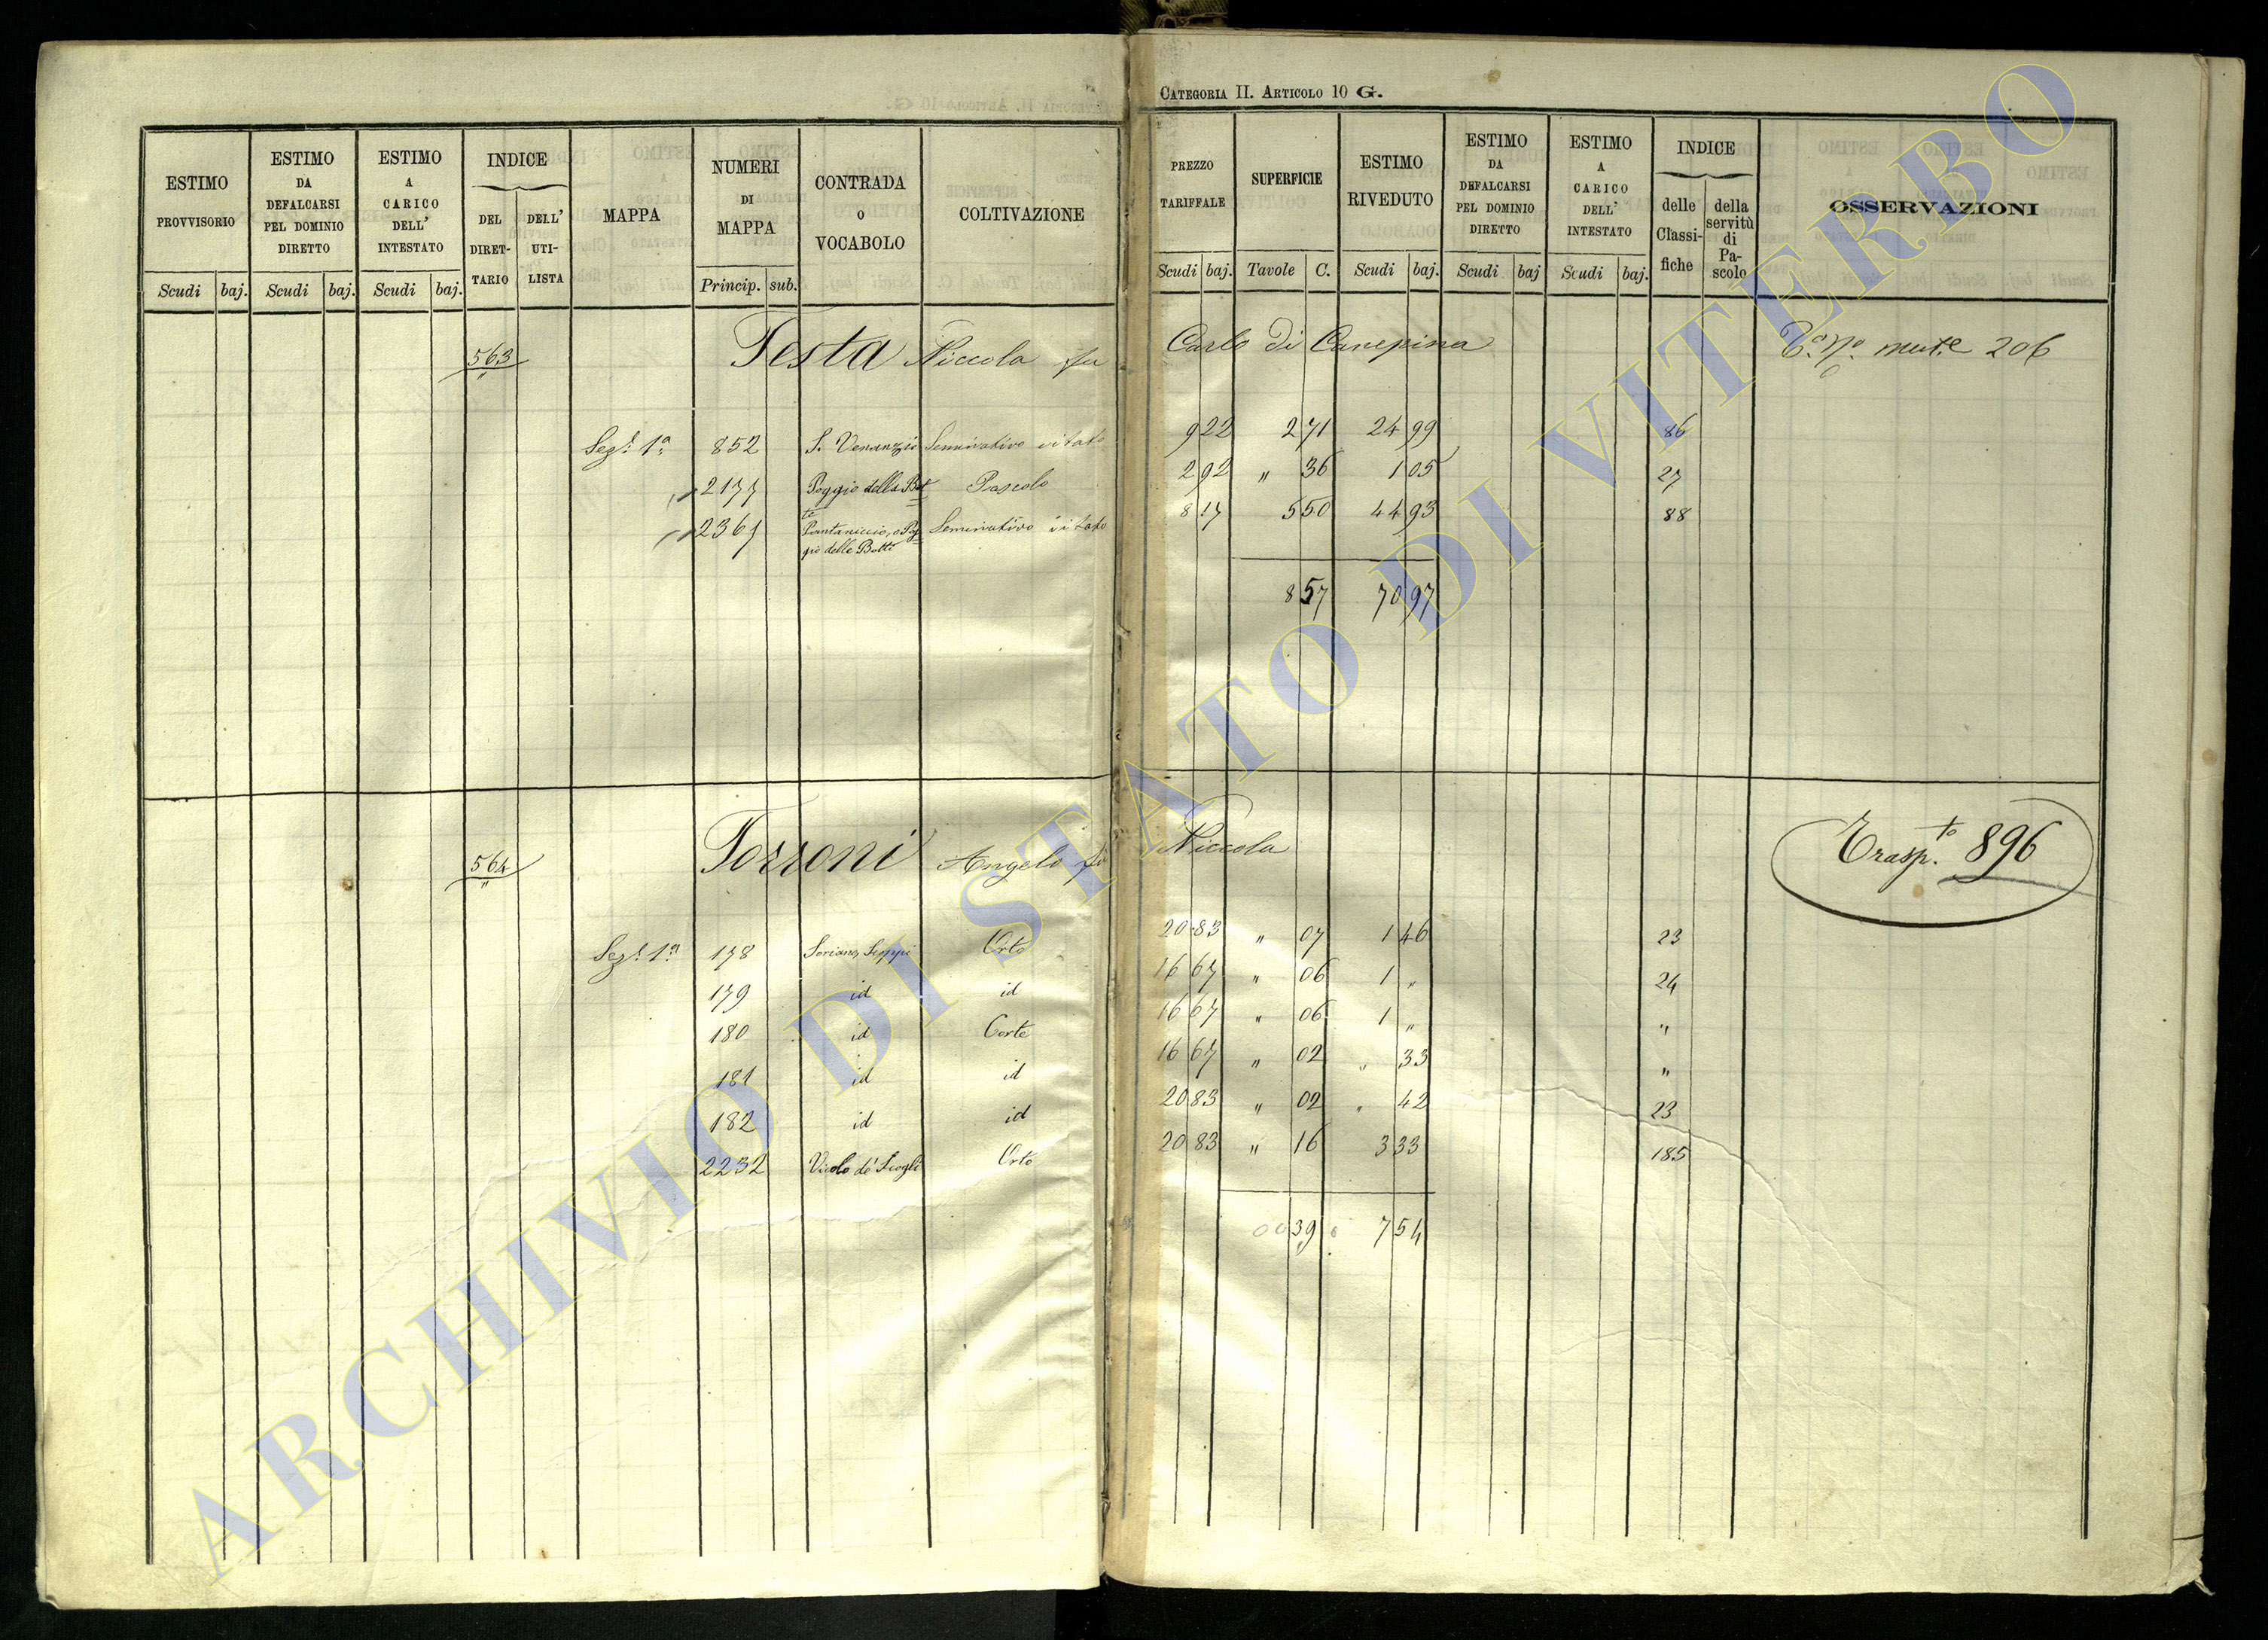 CATEGORIA II. ARTICOLO 10 G.
ESTIMO PROVVISORIO Scudi baj.
ESTIMO DA DEFALCARSI PEL DOMINIO DIRETTO Scudi baj.
ESTIMO A CARICO DELL' INTESTATO Scudi baj.
INDICE DEL DIRETTARIO DELL' UTILISTA
MAPPA
NUMERI DI MAPPA Princip. sub.
CONTRADA O VOCABOLO
COLTIVAZIONE
PREZZO TARIFFALE Scudi baj.
SUPERFICIE Tavole C.
ESTIMO RIVEDUTO Scudi baj.
ESTIMO DA DEFALCARSI PEL DOMINIO DIRETTO Scudi baj
ESTIMO A CARICO DELL' INTESTATO Scudi baj.
INDICE delle Classifiche della servitù di Pascolo
OSSERVAZIONI
563 Testa Niccola fu Carlo di Canepina 206
Sez.e 1a 852 S. Venanzio Seminativo vitato 9 22 2 71 24 99 86
2177 Poggio della Bot Pascolo 2 92 " 36 1 05 27
te
2367 Pantaniccio, o Pog Seminativo vitato 8 17 5 50 44 93 88
gio delle Botti
8 57 70 97
564 Torroni Angelo fu Niccola Trasp.to 896
Sez.e 1a 178 Orto 20 83 " 07 1 46 23
179 id id 16 67 " 06 1 " 24
180 id Corte 16 67 " 06 1 " "
181 id id 16 67 " 02 " 33 "
182 id id 20 83 " 02 " 42 23
2232 Vicolo de' Scogli Orto 20 83 " 16 3 33 185
0 0 39 7 54
ARCHIVIO DI STATO DI VITERBO